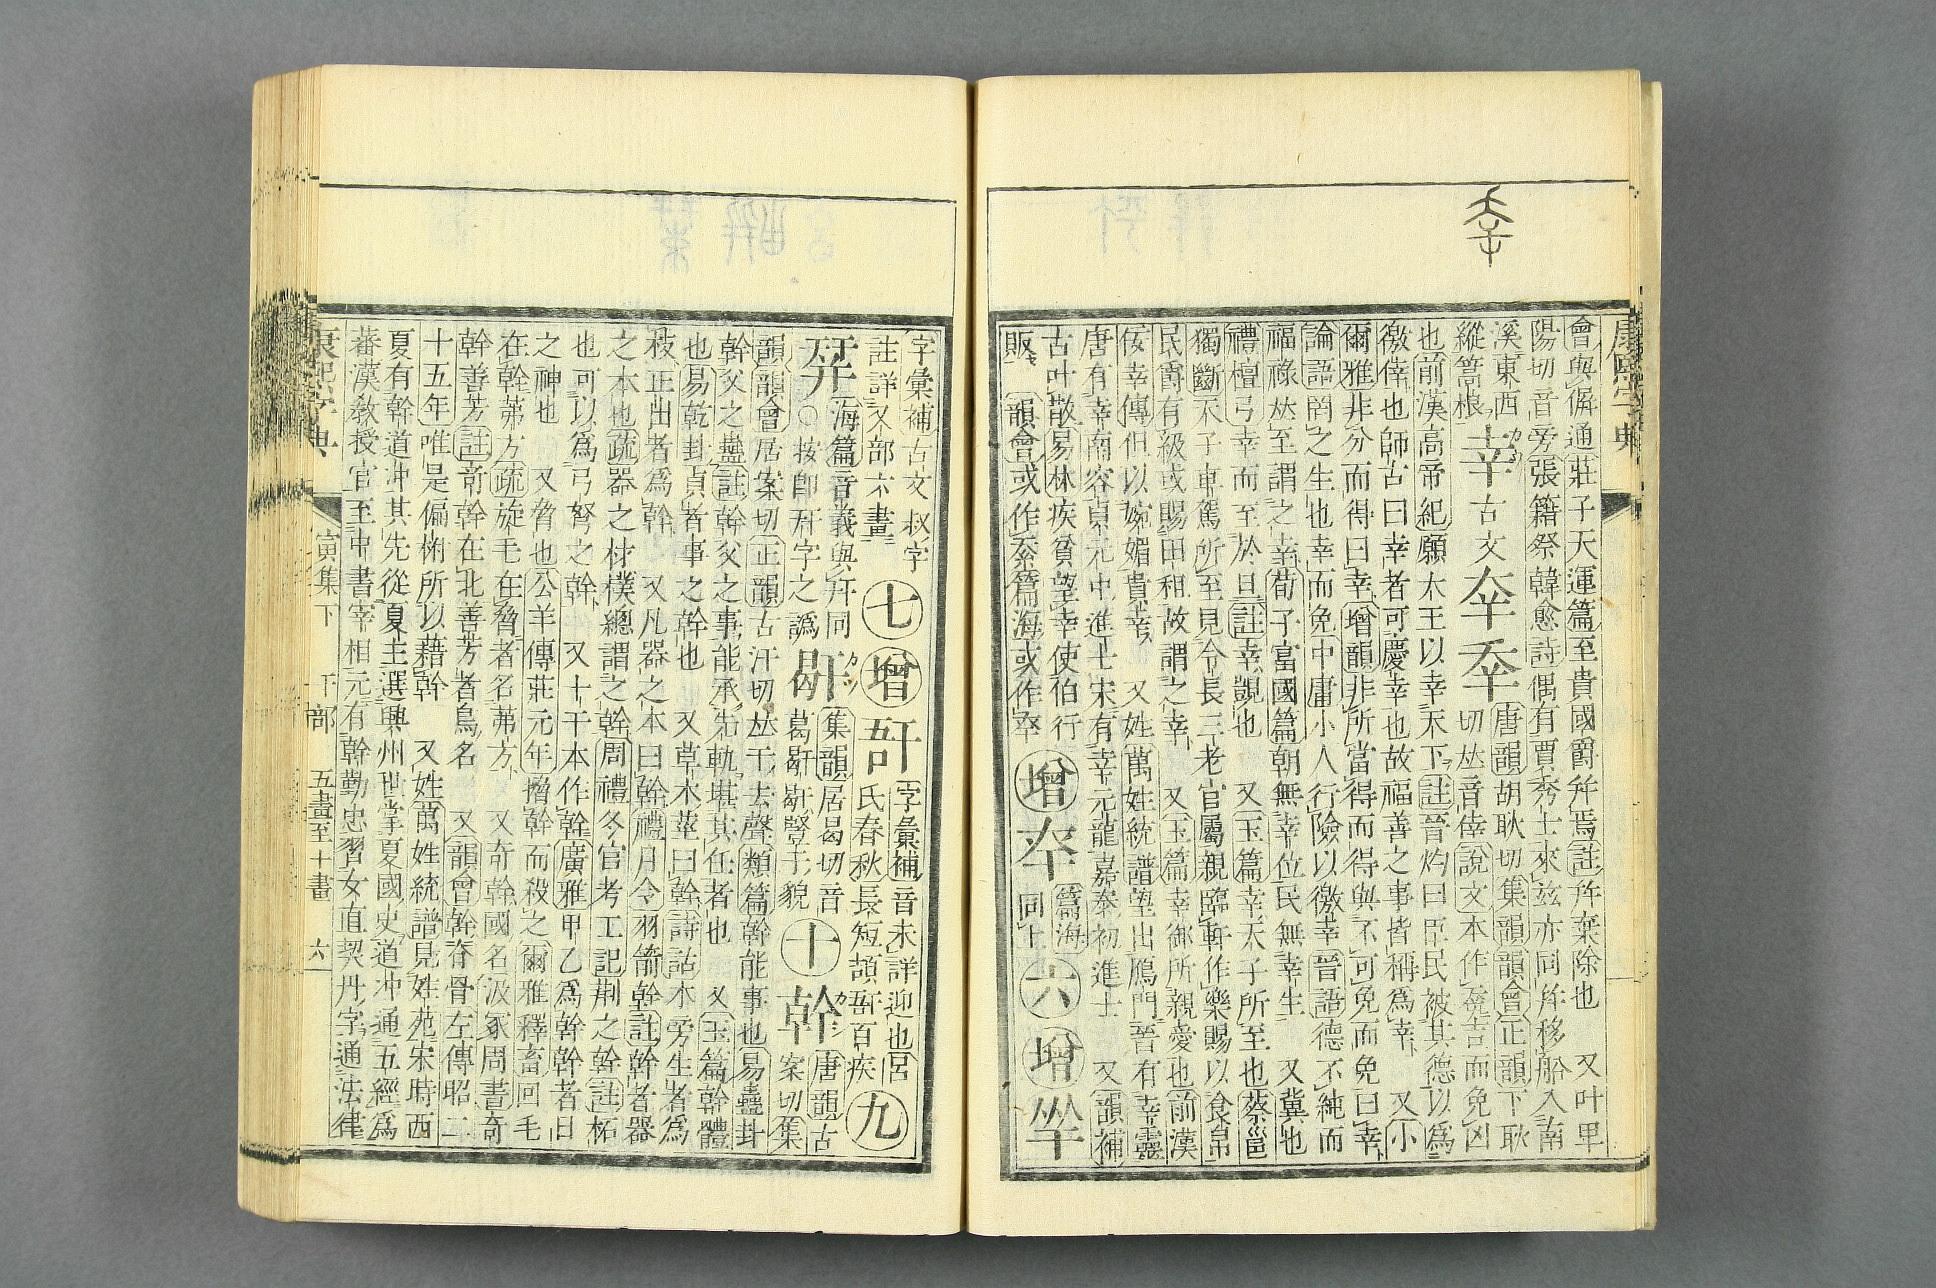 㚔
康熙字典
會與偋通莊子天運篇至貴國爵幷焉註幷棄除也 又叶卑
陽切音旁張籍祭韓愈詩偶有賈秀士來兹亦同幷移船入南
溪東西縱篙根 幸 古文 㚔 唐韻胡耿切集韻韻會正韻下耿
切𠀤音倖說文本作㚔吉而免凶
也前漢高帝紀願大王以幸天下註晉灼曰臣民被其德以爲
徼倖也師古曰幸者可慶幸也故福善之事皆稱爲幸 又小
爾雅非分而得曰幸增韻非所當得而得與不可免而免曰幸
論語罔之生也幸而免中庸小人行險以徼幸晉語德不純而
福祿𠀤至謂之幸荀子富國篇朝無幸位民無幸生 又冀也
禮檀弓幸而至於旦註幸覬也 又玉篇幸天子所至也蔡邕
獨斷天子車駕所至見令長三老官屬親臨軒作樂賜以食帛
民爵有級或賜田租故謂之幸 又玉篇幸御所親愛也前漢
佞幸傳但以婉媚貴幸 又姓萬姓統譜望出鴈門晉有幸靈
唐有幸南容貞元中進士宋有幸元龍嘉泰初進士 又韻補
古叶散易林疾貧望幸使伯行
販 韻會或作㚔篇海或作 增 篇海同上 六 增
字彙補古文叔字
註詳又部六畫 七 增 𠵽 字彙補音未詳迎也呂
氏春秋長短頡𠵽百疾 九
幵 海篇音義與幵同
○按卽幵字之譌 𢆡 集韻居曷切音
葛𢆡𢆡豎干貌 十 幹 唐韻古
案切集
韻韻會居案切正韻古汗切𠀤干去聲類篇幹能事也易蠱卦
幹父之蠱註幹父之事能承先軌堪其任者也 又玉篇幹體
也易乾卦貞者事之幹也 又草木莖曰幹詩詁木旁生者爲
枝正出者爲幹 又凡器之本曰幹禮月令羽箭幹註幹者器
之本也疏器之材樸總謂之幹周禮冬官考工記荆之幹註柘
也可以爲弓弩之幹 又十干本作幹廣雅甲乙爲幹幹者日
之神也 又脅也公羊傳莊元年搚幹而殺之爾雅釋畜回毛
在幹茀方疏旋毛在脅者名茀方 又奇幹國名汲冢周書奇
幹善芳註奇幹在北善芳者鳥名 又韻會幹脊骨左傳昭二
十五年唯是偏柎所以藉幹 又姓萬姓統譜見姓苑宋時西
夏有幹道冲其先從夏主遷興州世掌夏國史道冲通五經爲
蕃漢敎授官至中書宰相元有幹勤忠習女直契丹字通法律
康熙字典 寅集下 干部 五畫至十畫 六